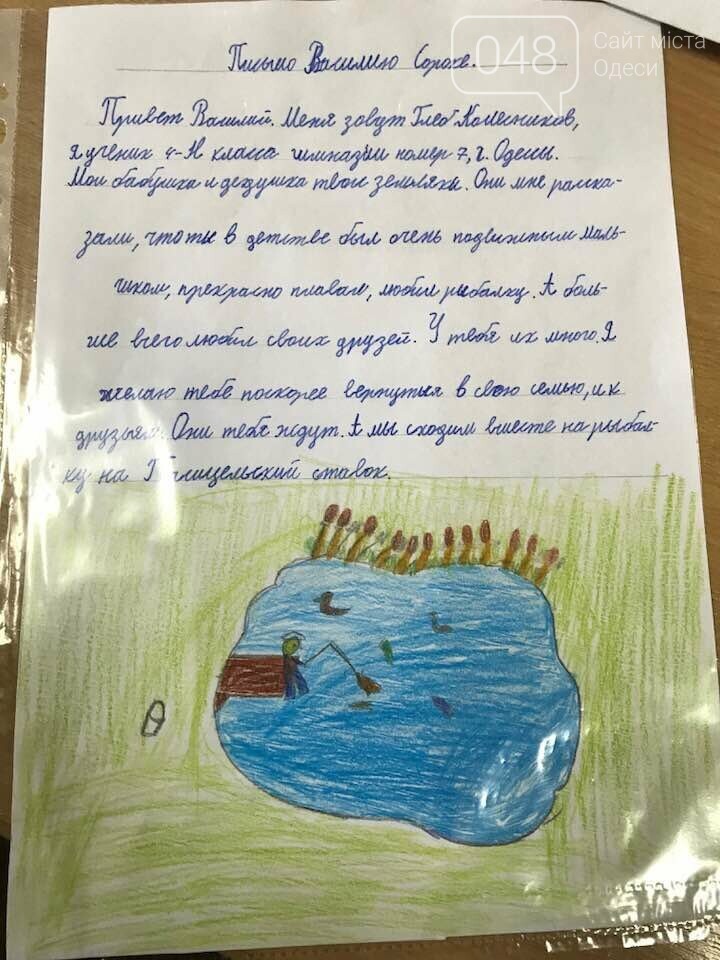 048
Сайт міста
Одеси
Письмо Василию Сороке.
Привет Василий. Меня зовут Глеб Колесников,
я ученик 4-Н класса гимназии номер 7, г. Одессы.
Мои бабушка и дедушка твои земляки. Они мне расска-
зали, что ты в детстве был очень подвижным маль-
чиком, прекрасно плавал, любил рыбалку. А боль-
ше всего любил своих друзей. У тебя их много. Я
желаю тебе поскорее вернуться в свою семью, и к
друзьям. Они тебя ждут. А мы сходим вместе на рыбал-
ку на ставок.